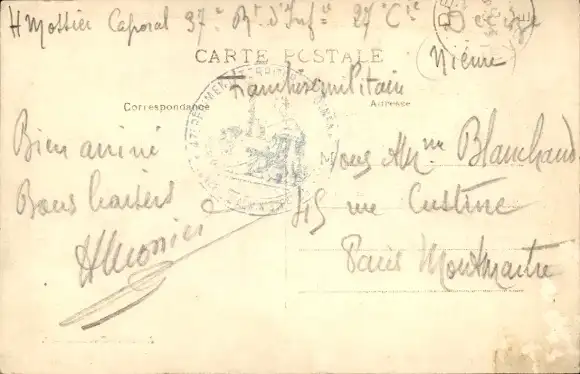 H Mottier Caporal 37e Rt d'Infie 27e Cie Decize
Nièvre
CARTE POSTALE
Franchise militaire
Correspondance
Adresse
Bien arrivé
Bons baisers
M
Mme Blanchaud
45 rue Custine
Paris Montmartre